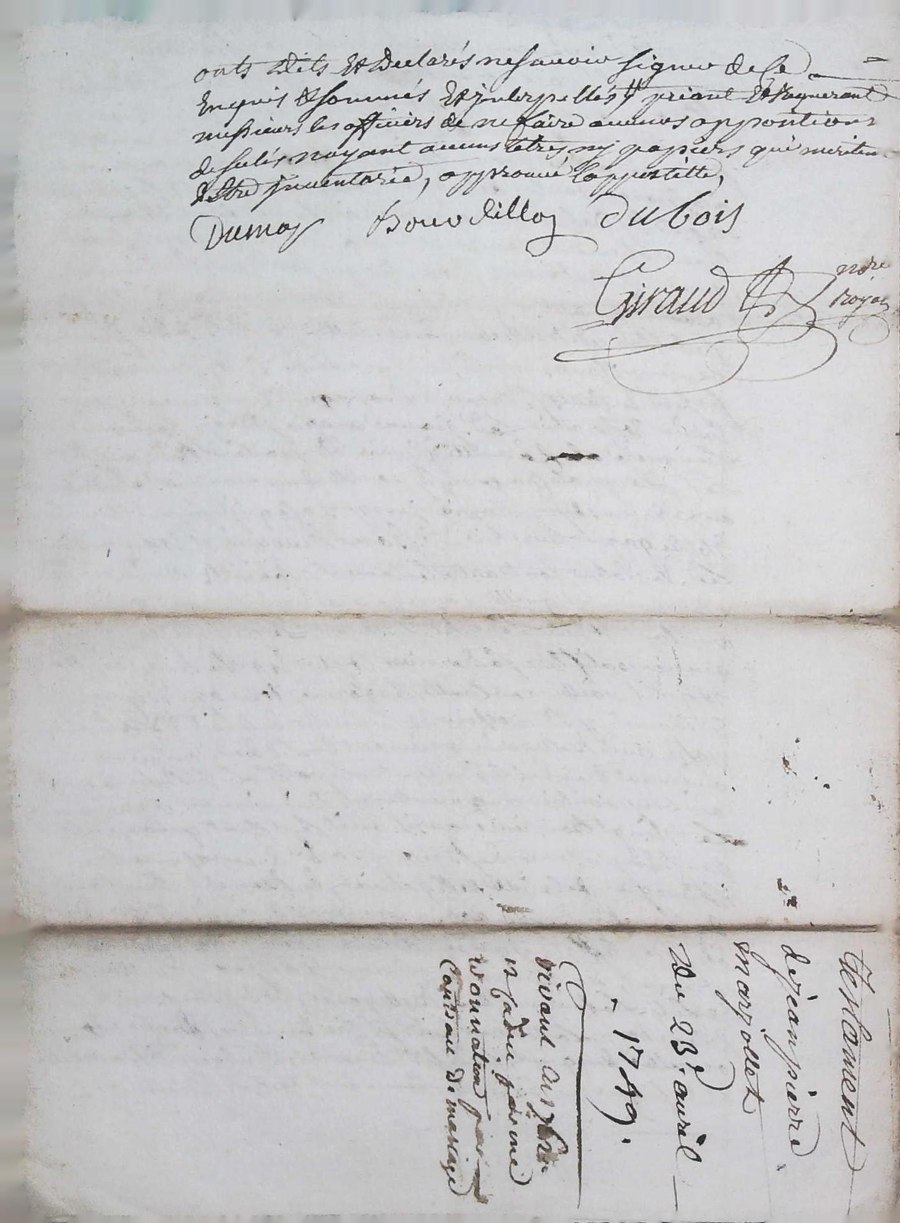 onts dits Et Declarés ne savoir signer de ce
Enquis & sommés Et interpellés priant Et Requerant
messieurs les officiers de ne faire aucunes appositions
de selés nayant aucuns titres ny papiers qui meriten
destre inventorié, approuvé lappostille,
Dumas Bourdillon dubois
Giraud nore
Royal
testament
de jean pierre
marjollet
Du 23e. avril
1749.
vivant
par
Donnation
Contract De mariage